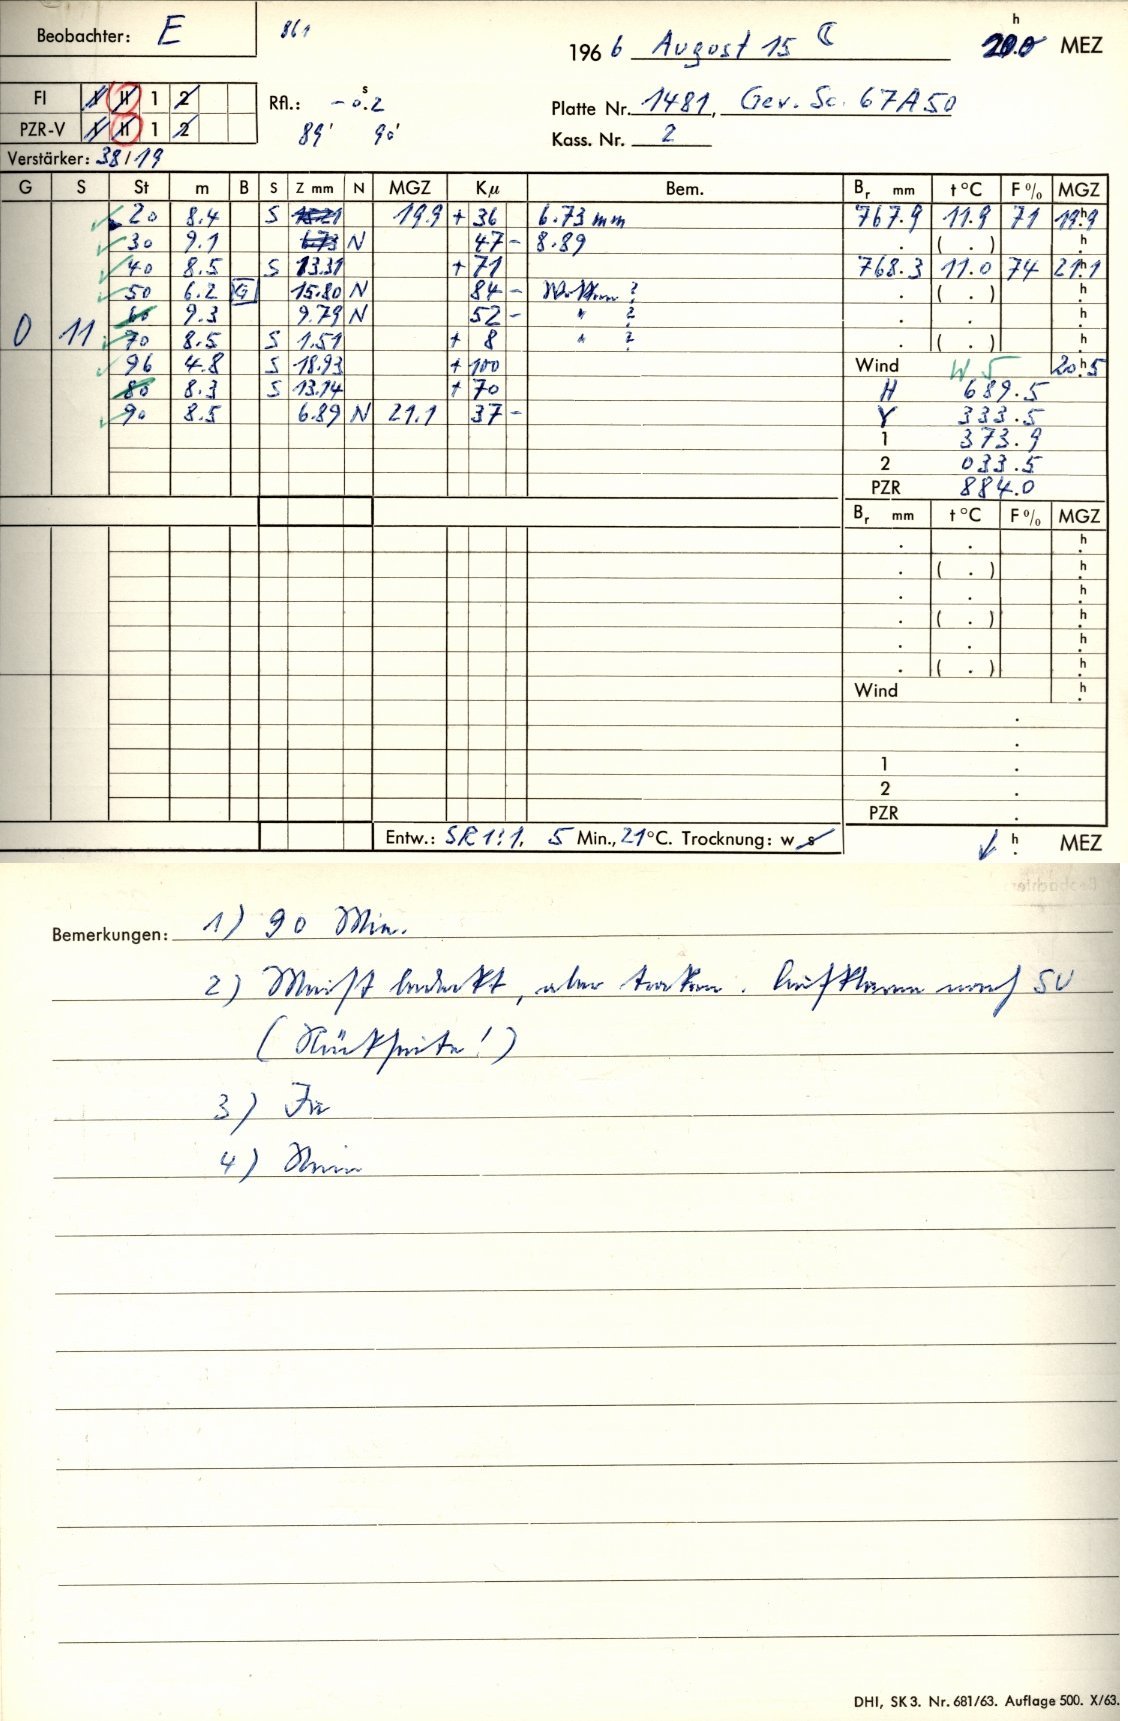 Beobachter: E
861
1966 August 15 ☾
h
20.0 MEZ
FI I II 1 2
PZR-V I II 1 2
Verstärker: 38/19
Rfl.: -0.2 s
89' 90'
Platte Nr. 1481, Gev. Sc. 67A50
Kass. Nr. 2
G S St m B S Z mm N MGZ Kμ Bem.
0 11
20 8.4 S 19.9 + 36 6.73 mm
30 9.1 6.73 N 47 - 8.89
40 8.5 S 13.31 + 71
50 6.2 G 15.80 N 84 - Wolken ?
60 9.3 9.79 N 52 - " ?
70 8.5 S 1.51 + 8 " ?
96 4.8 S 18.93 + 100
80 8.3 S 13.14 + 70
90 8.5 6.89 N 21.1 37 -
Br mm t °C F % MGZ
767.9 11.9 71 19h9
. ( . ) h
768.3 11.0 74 21h1
. ( . ) h
. . h
. ( . ) h
Wind W 5 20h5
H 689.5
Y 333.5
1 373.9
2 033.5
PZR 884.0
Br mm t °C F % MGZ
. . h
. ( . ) h
. . h
. ( . ) h
. . h
. ( . ) h
Wind h
1 .
2 .
PZR .
Entw.: SR 1:1, 5 Min., 21 °C. Trocknung: w s
h MEZ
Bemerkungen: 1) 90 Min.
2) Meist bedeckt, aber trocken. Aufklaren nach SU
(Rückseite!)
3) Ja
4) Nein
DHI, SK 3. Nr. 681/63. Auflage 500. X/63.